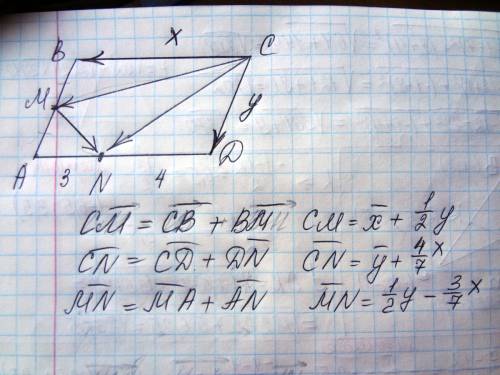 x
B C
M y
A 3 N 4 D
CM̅ = C̅B̅ + B̅M̅ CM = x̅ + 1/2 y
C̅N̅ = C̅D̅ + D̅N̅ C̅N̅ = y̅ + 4/7 x
M̅N̅ = M̅A̅ + A̅N̅ M̅N̅ = 1/2 y − 3/7 x